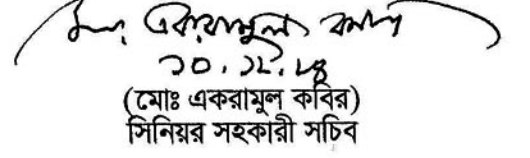 মোঃ একরামুল কবির
১০.১২.১৪
(মোঃ একরামুল কবির)
সিনিয়র সহকারী সচিব